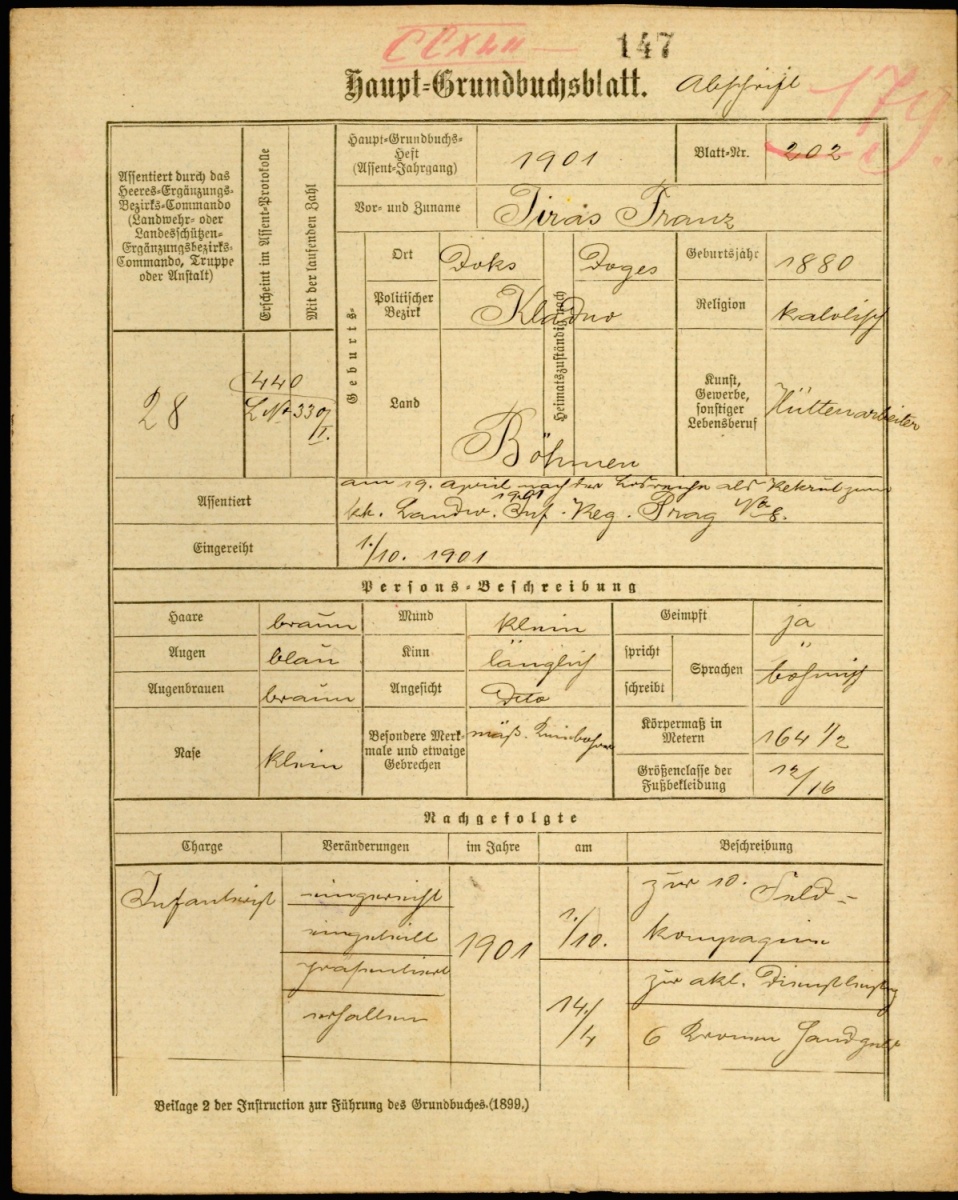 147
Haupt=Grundbuchsblatt. Abschrift
179.
Assentiert durch das
Heeres=Ergänzungs=
Bezirks=Commando
(Landwehr= oder
Landesschützen=
Ergänzungsbezirks=
Commando, Truppe
oder Anstalt)
Erscheint im Assent=Protokolle
Mit der laufenden Zahl
Haupt=Grundbuchs=
Heft
(Assent=Jahrgang)
1901
Blatt=Nr.
202
Vor= und Zuname
Tiras Franz
Geburts=
Ort
Doks
Heimatszuständig nach
Doges
Geburtsjahr
1880
Politischer
Bezirk
Kladno
Religion
katolisch
28
440
Land
Böhmen
Kunst,
Gewerbe,
sonstiger
Lebensberuf
Hüttenarbeiter
Assentiert
am 19. April 1901 nach der Losreihe als Rekrut zum
kk. Landw. Inf. Reg. Prag No 8.
Eingereiht
1./10. 1901
Persons=Beschreibung
Haare
braun
Mund
klein
Geimpft
ja
Augen
blau
Kinn
länglich
spricht
schreibt
Sprachen
böhmisch
Augenbrauen
braun
Angesicht
Dto
Nase
klein
Besondere Merk=
male und etwaige
Gebrechen
mäß.
Körpermaß in
Metern
164 1/2
Größenclasse der
Fußbekleidung
12/16
Nachgefolgte
Charge
Veränderungen
im Jahre
am
Beschreibung
Infanterist
eingereiht
eingeteilt
1901
1./10.
zur 10. Feld=
kompagnie
präsentiert
zur akt. Dienstleistg
erhalten
6 Kronen Handgeld
Beilage 2 der Instruction zur Führung des Grundbuches. (1899.)